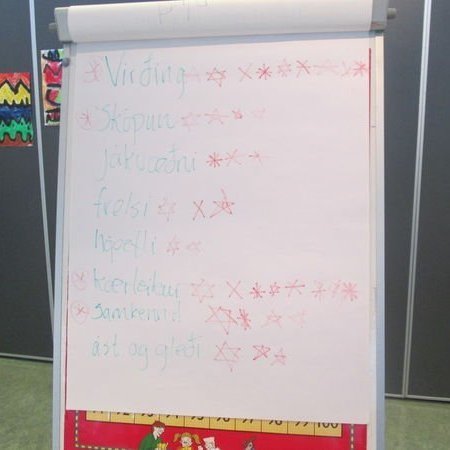 Virðing
Sköpun
jákvæðni
frelsi
hópefli
kærleikur
Samkennd
ást og gleði
92 93 94 95 96 97 98 99 100